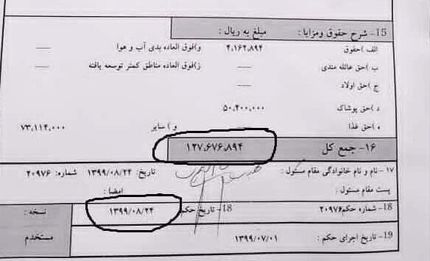 15- شرح حقوق ومزایا : مبلغ به ریال :
الف )حقوق ۴,۱۶۲,۸۹۴ و)فوق العاده بدی آب و هوا —
ب )حق عائله مندی — ز)فوق العاده مناطق کمتر توسعه یافته —
ج )حق اولاد —
د )حق پوشاک ۵۰,۴۰۰,۰۰۰
ه )حق غذا و ) سایر ۷۳,۱۱۴,۰۰۰
۱۶- جمع کل ۱۲۷,۶۷۶,۸۹۴
۱۷- نام و نام خانوادگی مقام مسئول : تاریخ: ۱۳۹۹/۰۸/۲۴ شماره: ۲۰۹۷۶
پست مقام مسئول : امضا :
18- شماره حکم:۲۰۹۷۶ 18- تاریخ حکم ۱۳۹۹/۰۸/۲۴ نسخه :
19- تاریخ اجرای حکم : ۱۳۹۹/۰۷/۰۱ مستخدم